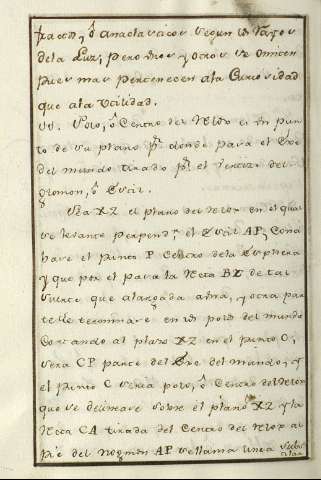 fractos, ó Anaclasticos segun los rayos
de la Luz; pero estos y otros se omiten
pues mas pertenecen a la Curiosidad
que a la Utilidad.
Polo, ó Centro del Relox es un Pun
to de su plano pr. donde pasa el Exe
del mundo tirado pr. el vertice del
gnomon, ó Estil.
Sea XZ el plano del relox en el qual
se levante perpendr. el Estil AP, Conq
have el punto P Centro de la Esphera
y que por el pasa la Recta BD de tal
suerte que alargada a una, y otra par
te le terminare en los polos del mundo
Cortando al plano XZ en el punto C,
sera CP parte del Exe del mundo, y
el punto C seria polo, ó Centro del Relox
que se delineare sobre el plano XZ y la
Recta CA tirada del Centro del relox al
pie del Nogmon AP se llama linea Subs
tilar